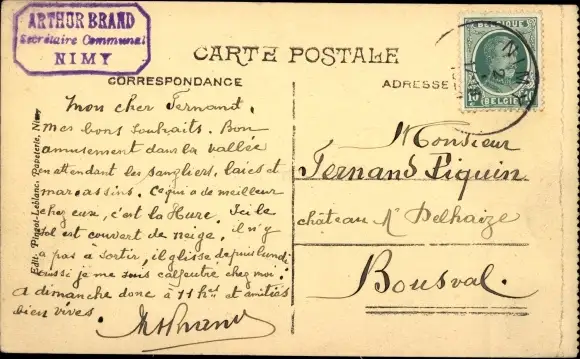 ARTHUR BRAND
Secrétaire Communal
NIMY
CARTE POSTALE
CORRESPONDANCE
Mon cher Fernand,
mes bons souhaits. Bon
amusement dans la vallée
en attendant les sangliers, laies et
marcassins. Ce qui a de meilleur
chez eux, c'est la Hure. Ici le
sol est couvert de neige. il n'y
a pas à sortir, il glisse depuis lundi
aussi je me suis calfeutré chez moi.
A dimanche donc à 11 hes et amitiés
bien vives.
Edit. Pingot-Leblanc, Papeterie, Nimy
ADRESSE
BELGIQUE
BELGIË
NIMY
Monsieur
Fernand Piquin
château Mr Delhaize
Bousval.